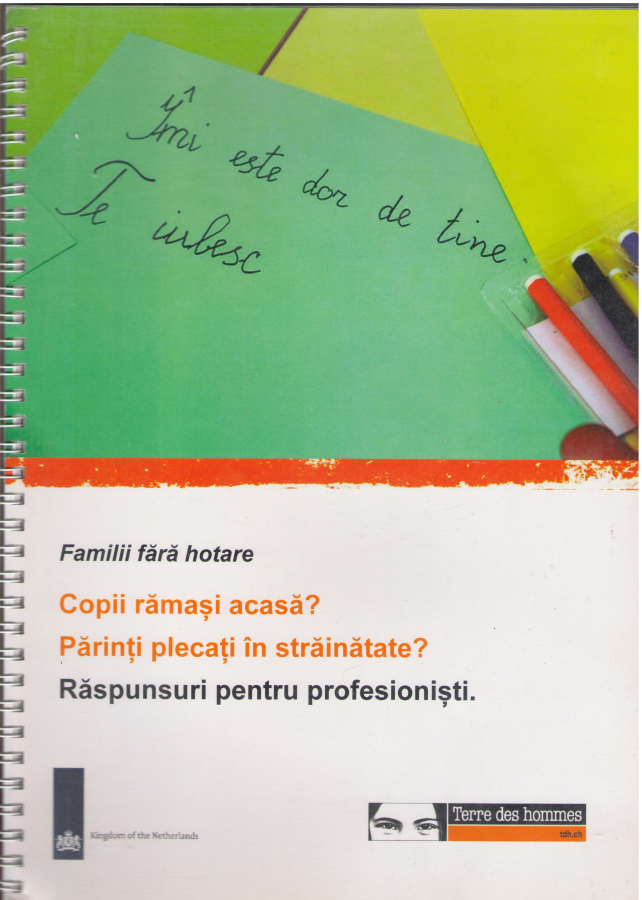 Îmi este dor de tine.
Te iubesc
Familii fără hotare
Copii rămași acasă?
Părinți plecați în străinătate?
Răspunsuri pentru profesioniști.
Kingdom of the Netherlands
Terre des hommes
tdh.ch